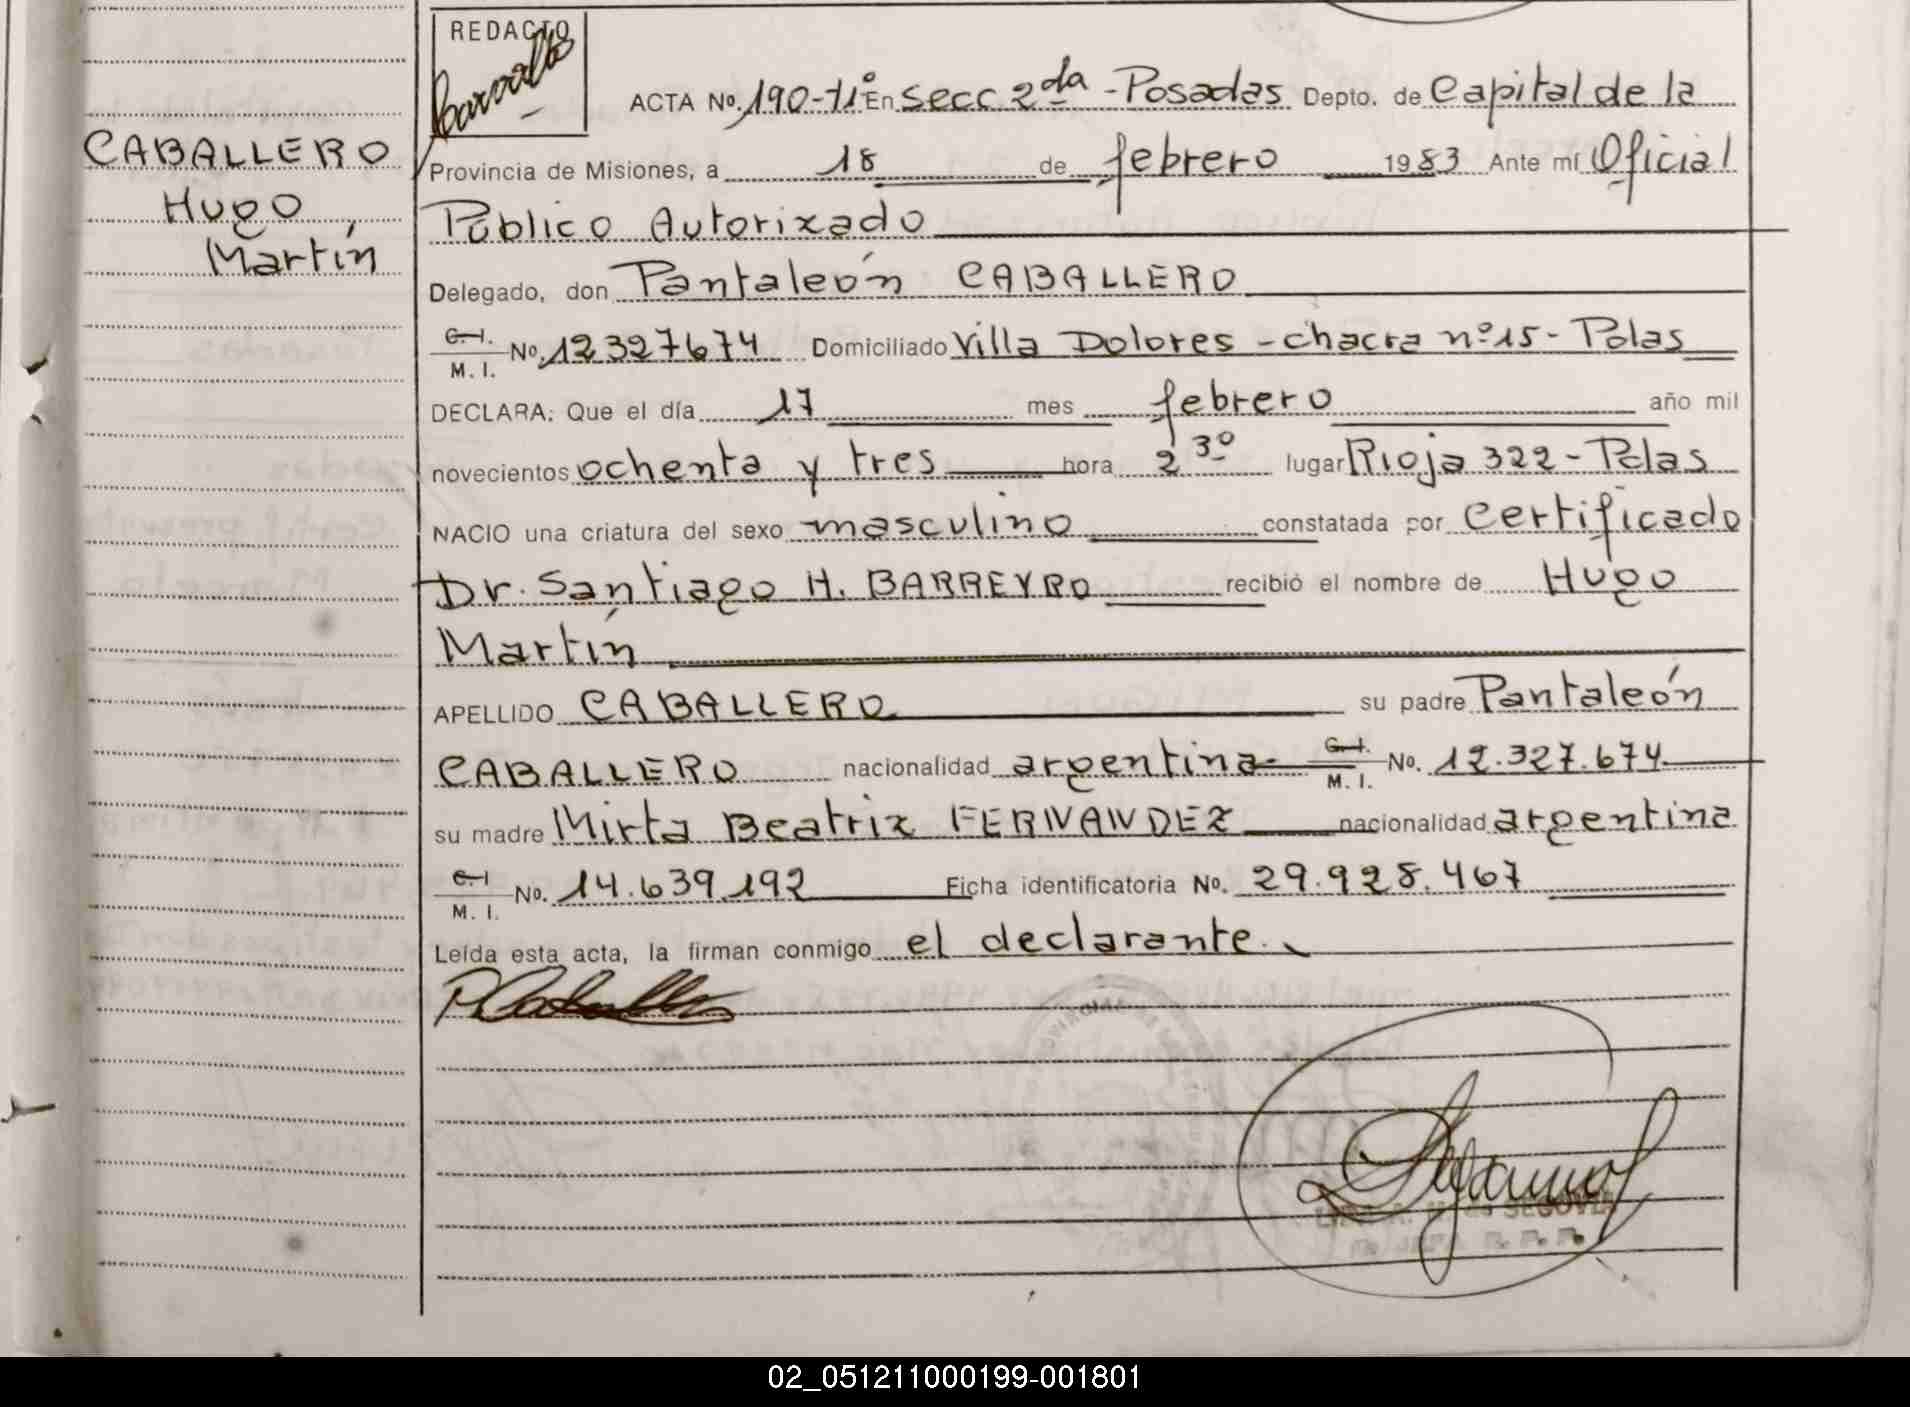 REDACTO
ACTA No. 190-TIº En Secc 2da - Posadas Depto. de Capital de la
CABALLERO
Hugo
Martín
Provincia de Misiones, a 18 de febrero 1983 Ante mí Oficial
Público Autorizado
Delegado, don Pantaleón CABALLERO
C.I. M. I. No. 12327674 Domiciliado Villa Dolores - chacra nº 15 - Pdas
DECLARA: Que el día 17 mes febrero año mil
novecientos ochenta y tres hora 2 30 lugar Rioja 322 - Pdas
NACIO una criatura del sexo masculino constatada por certificado
Dr. Santiago H. BARREYRO recibió el nombre de Hugo
Martín
APELLIDO CABALLERO su padre Pantaleón
CABALLERO nacionalidad argentina C.I. M. I. No. 12.327.674
su madre Mirta Beatriz FERNANDEZ nacionalidad argentina
C.I M. I. No. 14.639.192 Ficha identificatoria No. 29.928.467
Leída esta acta, la firman conmigo el declarante.
P Caballero
SEGOVIA
02_051211000199-001801